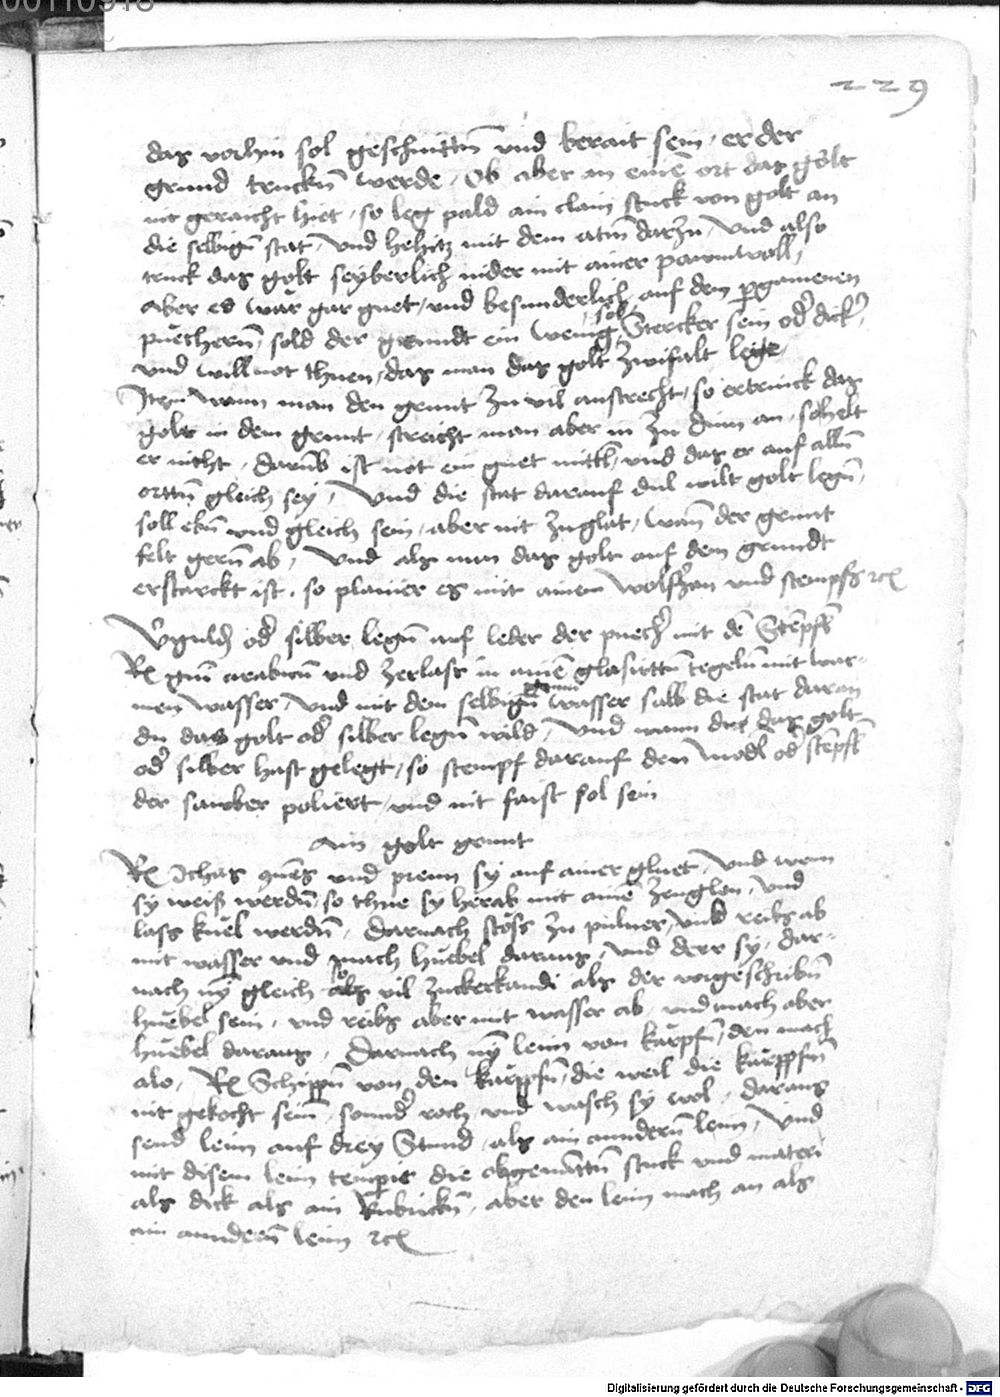 00110918
229
das vorhin sol geschnittn̄ vnd berait sein, er der
grund truckn̄ werde, Ob aber an einē ort das golt
nit geraicht hiet, so leg pald ain clain stuck von golt an
die selbign̄ stat, Vnd hehitz mit dem atm̄ darzu, Vnd also
truck das golt seyberlich nider mit ainer pawmwoll,
Aber es wär gar guet, vnd besunderlich auf den pgamenen
püechern̄, sold der grundt ein wenig sol Stercker sein od̓ dick̓,
vnd will not thuen, das man das golt zwifalt lege,
Item wann man den grunt zu vil anstrecht, so ertrinck das
golt in dem grunt, streicht man aber in zu dinn an, so helt
er nicht, darūb ist not ein guet mittl, vnd das er auf alln̄
orttn̄ gleich sey, Vnd die stat darauf du wilt golt legn̄,
soll ebn̄ vnd gleich sein, aber nit zu glat, Wan̄ der grunt
felt gern̄ ab, Vnd als man das golt auf dem grundt
erstarckt ist, so planier es mit ainem wolfzan vnd stempfs ⁊c̄
Vguld̓ od̓ silber legn̄ auf leder der puech̓ mit dē Stēpfl
Rx gum̄ arabicū vnd zerlass in ainē glasirttn̄ tegeln̄ mit war-
men wasser, Vnd mit dem selbign̄ gumi wasser salb die stat daran
du das golt od̓ silber legn̄ wild, Vnd wann du das golt
od̓ silber hast gelegt, so stempf darauf den Modl od̓ stēpfl
der sawber poliert, vnd nit faist sol sein
Ain golt grunt
Rx Ichas quēs vnd prenn sy auf ainer gluet, Vnd wenn
sy weiß werdn̄, so thue sy herab mit ainē zenglen, Vnd
lass küel werdn̄, Darnach stöss zu puluer, vnd reibs ab
mit wasser vnd mach hüebel daraus, vnd derr sy, dar-
nach nȳ gleich so vil zuckerkandi als der vorgeschribn̄
hüebel sein, vnd reibs aber mit wasser ab, vnd mach aber
hüebel daraus, Darnach nȳ leim von karpfn̄, den mach
also, Rx Schüppn̄ von den karppfn̄, die weil die karppfn̄
nit gekocht sein, sonnd̓ roch, vnd wasch sy wol, daraus
send leim auf drey Stund, als ain anndern̄ leim, Vnd
mit disem leim tempir die obgenāttn̄ stuck vnd materi
als dick als ain Rubrickn̄, aber den leim mach an als
ain anndern̄ leim ⁊c̄
Digitalisierung gefördert durch die Deutsche Forschungsgemeinschaft - DFG